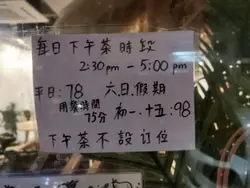 每日下午茶時段
2:30pm - 5:00pm
平日:78 六.日.假期
用餐時間 初一、十五:98
75分
下午茶不設订位